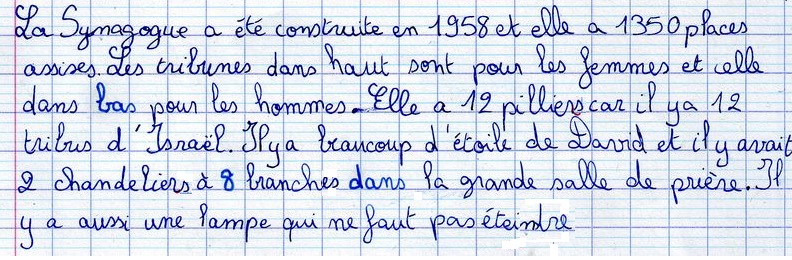 La Synagogue a été construite en 1958 et elle a 1350 places
assises. Les tribunes dans haut sont pour les femmes et celle
dans bas pour les hommes. Elle a 12 pilliers car il ya 12
tribus d'Israël. Il ya beaucoup d'étoile de David et il y avait
2 chandeliers à 8 branches dans la grande salle de prière. Il
y a aussi une lampe qui ne faut pas éteindre